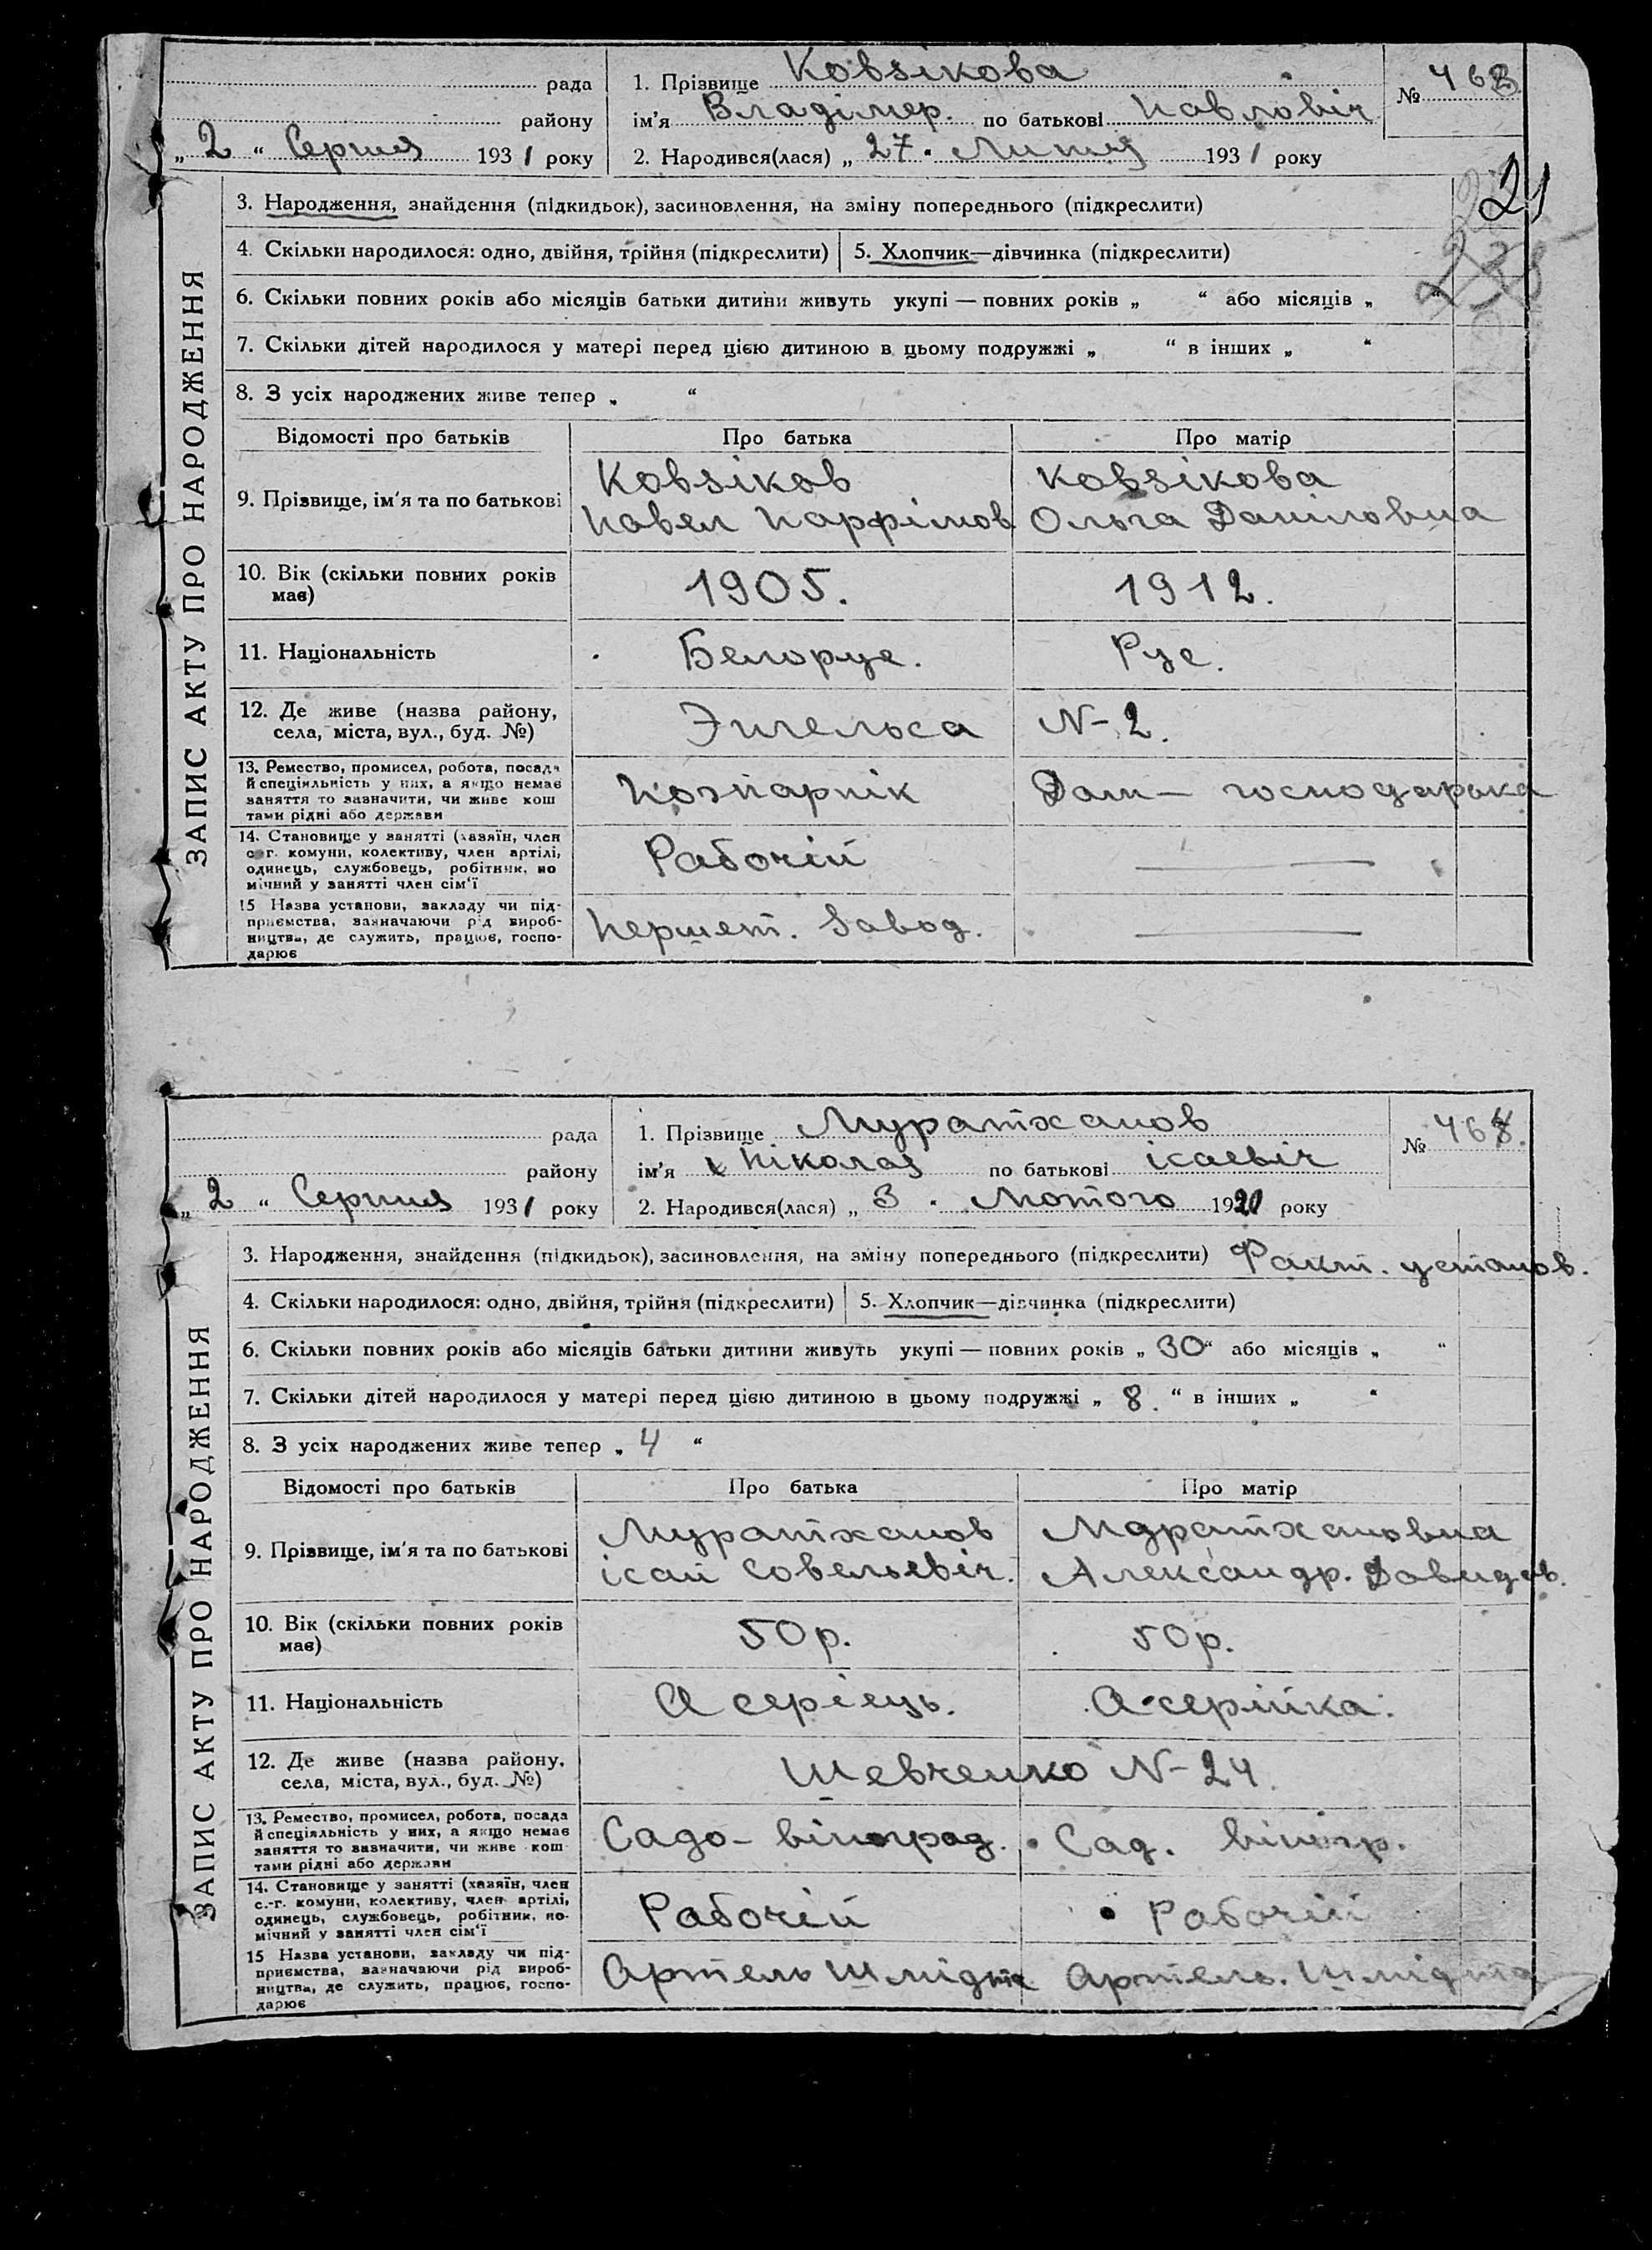 рада
району
„ 2 “ Серпня 1931 року
1. Прізвище Ковзікова
ім'я Владімер. по батькові Павловіч
2. Народився(лася) „ 27 “ Липня 1931 року
№ 463
21
ЗАПИС АКТУ ПРО НАРОДЖЕННЯ
3. Народження, знайдення (підкидьок), засиновлення, на зміну попереднього (підкреслити)
4. Скільки народилося: одно, двійня, трійня (підкреслити) 5. Хлопчик—дівчинка (підкреслити)
6. Скільки повних років або місяців батьки дитини живуть укупі — повних років „ “ або місяців „ “
7. Скільки дітей народилося у матері перед цією дитиною в цьому подружжі „ “ в інших „ “
8. З усіх народжених живе тепер „ “
Відомості про батьків Про батька Про матір
9. Прізвище, ім'я та по батькові
Ковзіков
Павел Парфімов
Ковзікова
Ольга Даніловна
10. Вік (скільки повних років має) 1905. 1912.
11. Національність Белорус. Рус.
12. Де живе (назва району, села, міста, вул., буд. №)
Энгельса N-2.
13. Ремество, промисел, робота, посада
й спеціяльність у них, а якщо немає
заняття то зазначити, чи живе кош
тами рідні або держави
Дом — господарька
14. Становище у занятті (хазяїн, член
с.-г. комуни, колективу, член артілі,
одинець, службовець, робітник, по
мічний у занятті член сім'ї
Рабочій
15 Назва установи, закладу чи під-
приємства, зазначаючи рід вироб-
ництва, де служить, працює, госпо-
дарює
Першет. Завод.
рада
району
„ 2 “ Серпня 1931 року
1. Прізвище Муратханов
ім'я Ніколаз по батькові ісаевіч
2. Народився(лася) „ 3 “ Лютого 1920 року
№ 464.
ЗАПИС АКТУ ПРО НАРОДЖЕННЯ
3. Народження, знайдення (підкидьок), засиновлення, на зміну попереднього (підкреслити) Факт. установ.
4. Скільки народилося: одно, двійня, трійня (підкреслити) 5. Хлопчик—дівчинка (підкреслити)
6. Скільки повних років або місяців батьки дитини живуть укупі — повних років „ 30 “ або місяців „ “
7. Скільки дітей народилося у матері перед цією дитиною в цьому подружжі „ 8. “ в інших „ “
8. З усіх народжених живе тепер „ 4 “
Відомості про батьків Про батька Про матір
9. Прізвище, ім'я та по батькові
Муратханов
ісай Совельевіч.
Мдратхановна
Александр. Довидов.
10. Вік (скільки повних років має) 50 р. 50 р.
11. Національність Асеріець. Асерійка.
12. Де живе (назва району, села, міста, вул., буд. №)
Шевченко N-24.
13. Ремество, промисел, робота, посада
й спеціяльність у них, а якщо немає
заняття то зазначити, чи живе кош
тами рідні або держави
Садо-віноград. Сад. виногр.
14. Становище у занятті (хазяїн, член
с.-г. комуни, колективу, член артілі,
одинець, службовець, робітник, по-
мічний у занятті член сім'ї
Рабочій Рабочій
15 Назва установи, закладу чи під-
приємства, зазначаючи рід вироб-
ництва, де служить, працює, госпо-
дарює
Артель Шмідта Артель. Шмідта